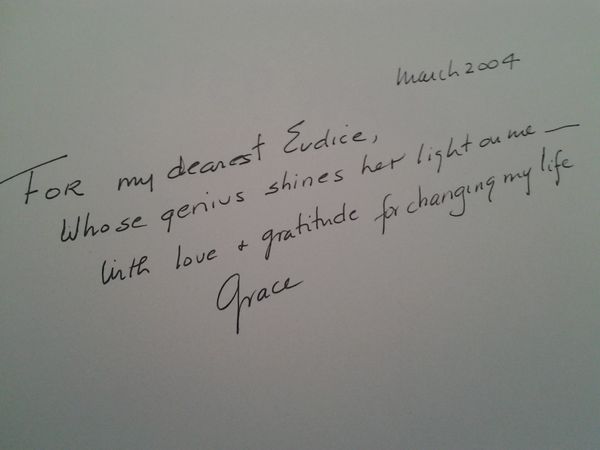 March 2004
FOR my dearest Eudice,
Whose genius shines her light on me —
With love + gratitude for changing my life
Grace